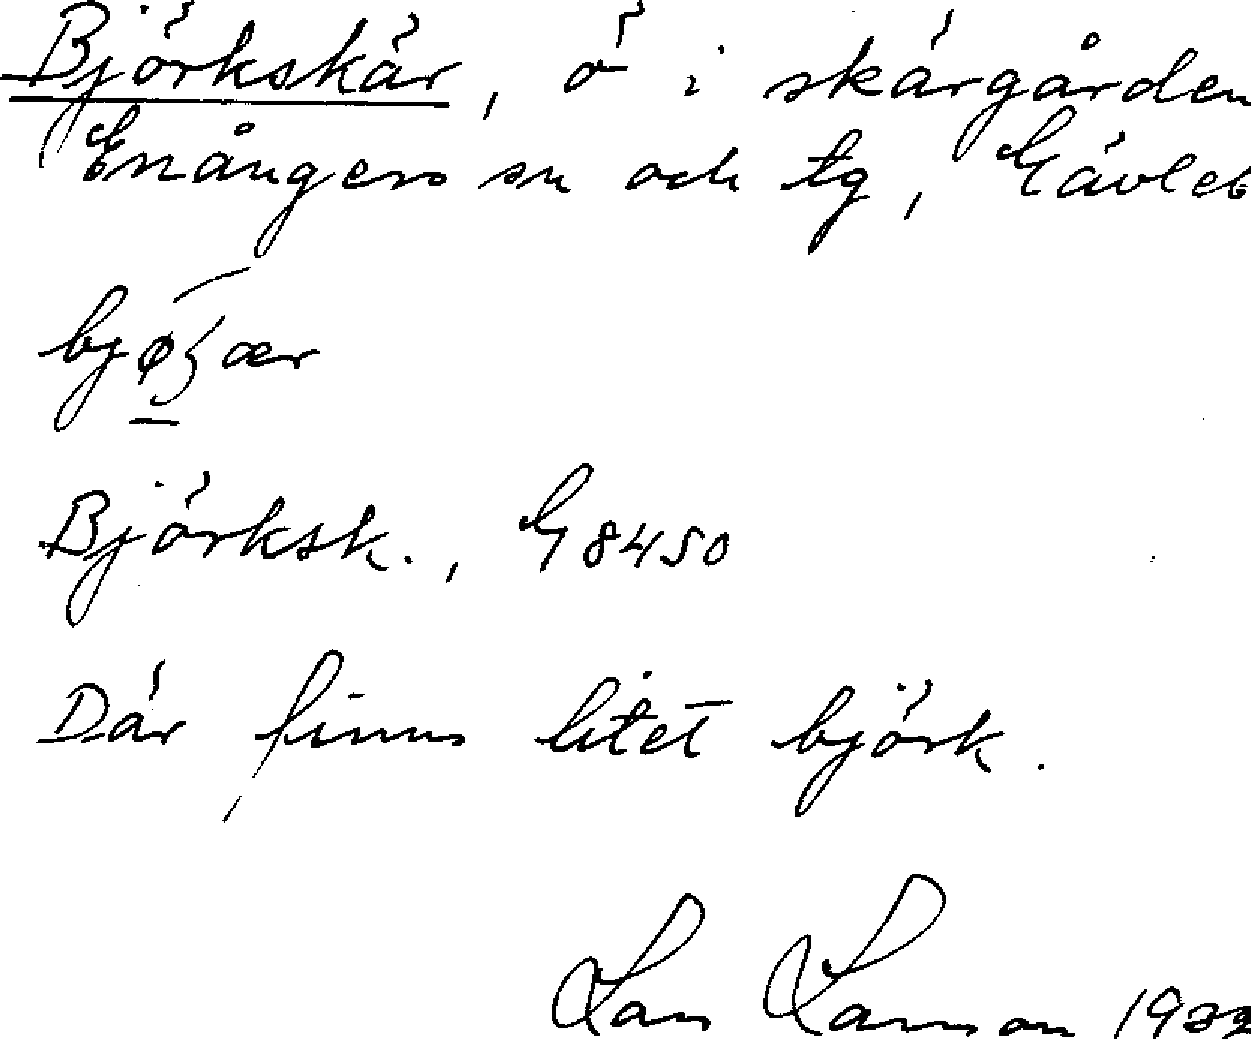 Björkskär, ö i skärgården
Enångers sn och tg, Gävleb
Björksk., G8450
Där finns litet björk.
Lars Larsson